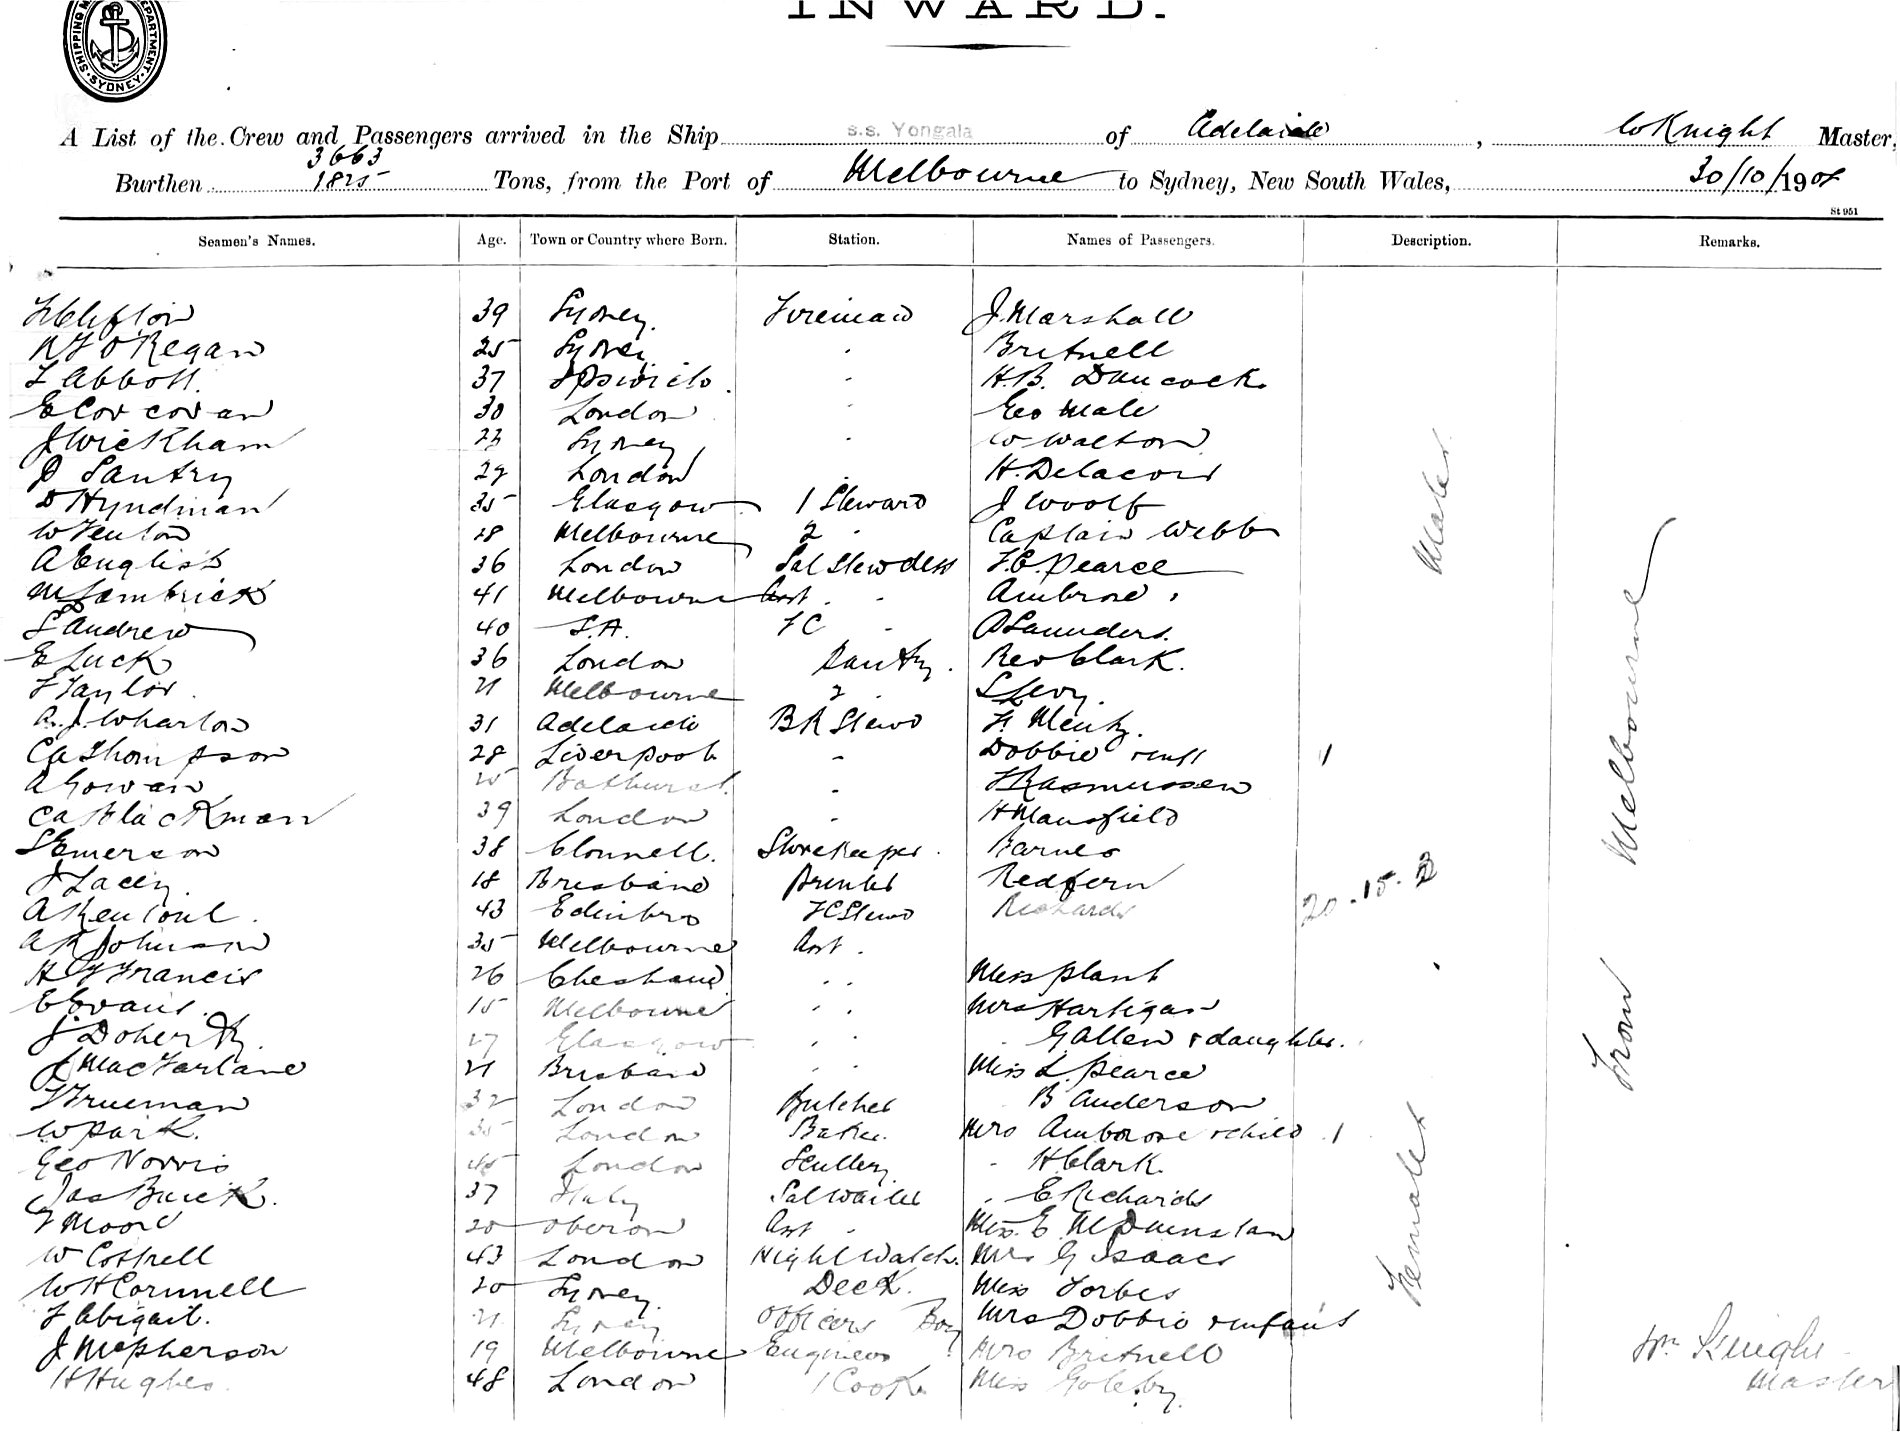 INWARD.
SHIPPING DEPARTMENT SYDNEY
A List of the Crew and Passengers arrived in the Ship s.s. Yongala of Adelaide, W Knight Master,
3663
Burthen 1825 Tons, from the Port of Melbourne to Sydney, New South Wales, 30/10/1908
St 951
Seamen's Names. Age. Town or Country where Born. Station. Names of Passengers. Description. Remarks.
39 Sydney. Fireman J. Marshall
O'Regan 25 Sydney " Britnell
Abbott. 37 Ipswich. " H.B.
E Corcoran 30 London " Geo Male
J Wickham Sydney " W Walton
Santry London " H. Delacour
D Hyndman 35 Glasgow 1 Steward J Woolf
W Fenton 28 Melbourne 2 " Captain Webb
A English 36 London Sal Stewdess F.C. Pearce
M Lambrick 41 Melbourne Asst. " Ambrose
S Andrew 40 S.A. FC " Saunders.
E Luck 36 London Pantry. Rev Clark.
F Taylor. 21 Melbourne 2 " S Levy.
A.J. Wharton 31 Adelaide BR Stewd
CA Thompson 28 Liverpool " Dobbie & inft 1
A Gowan 25 Bathurst. " Rasmussen
CA Flackman 39 London " H Mansfield
S Emerson 38 Clonmell. Storekeeper. Barnes
Lacey. 18 Brisbane Printer Redfern
A Rentoul. 43 Edinbro FC Stewd Richards
20.15.3
A R Johnson 35 Melbourne Asst.
H G Francis 26 " " Miss Plant
E Evans. 15 Melbourne " " Mrs Hartigan
J Doherty. 27 Glasgow " " " G Allen & daughter.
J MacFarlane 21 Brisbane " " Miss L. Pearce
Trueman 32 London Butcher " B Anderson
W Park. 35 London Baker. Mrs Ambrose & child 1
Geo Norris 45 London Scullery " H Clark.
Jas 37 Italy Sal Waiter " E Richards
Moore 20 Oberon Asst " Miss E.
W Cottrell 43 London Night Watch. Mrs G Isaacs
W H Cornnell 20 Sydney. Deck. Miss Forbes
F Abigail. 21 Sydney Officers Boy Mrs Dobbie & infant
J McPherson 19 Melbourne Engineers " Mrs Britnell
H Hughes. 48 London 1 Cook Miss Golesby.
Males
Females
From Melbourne
Wm Knight
Master